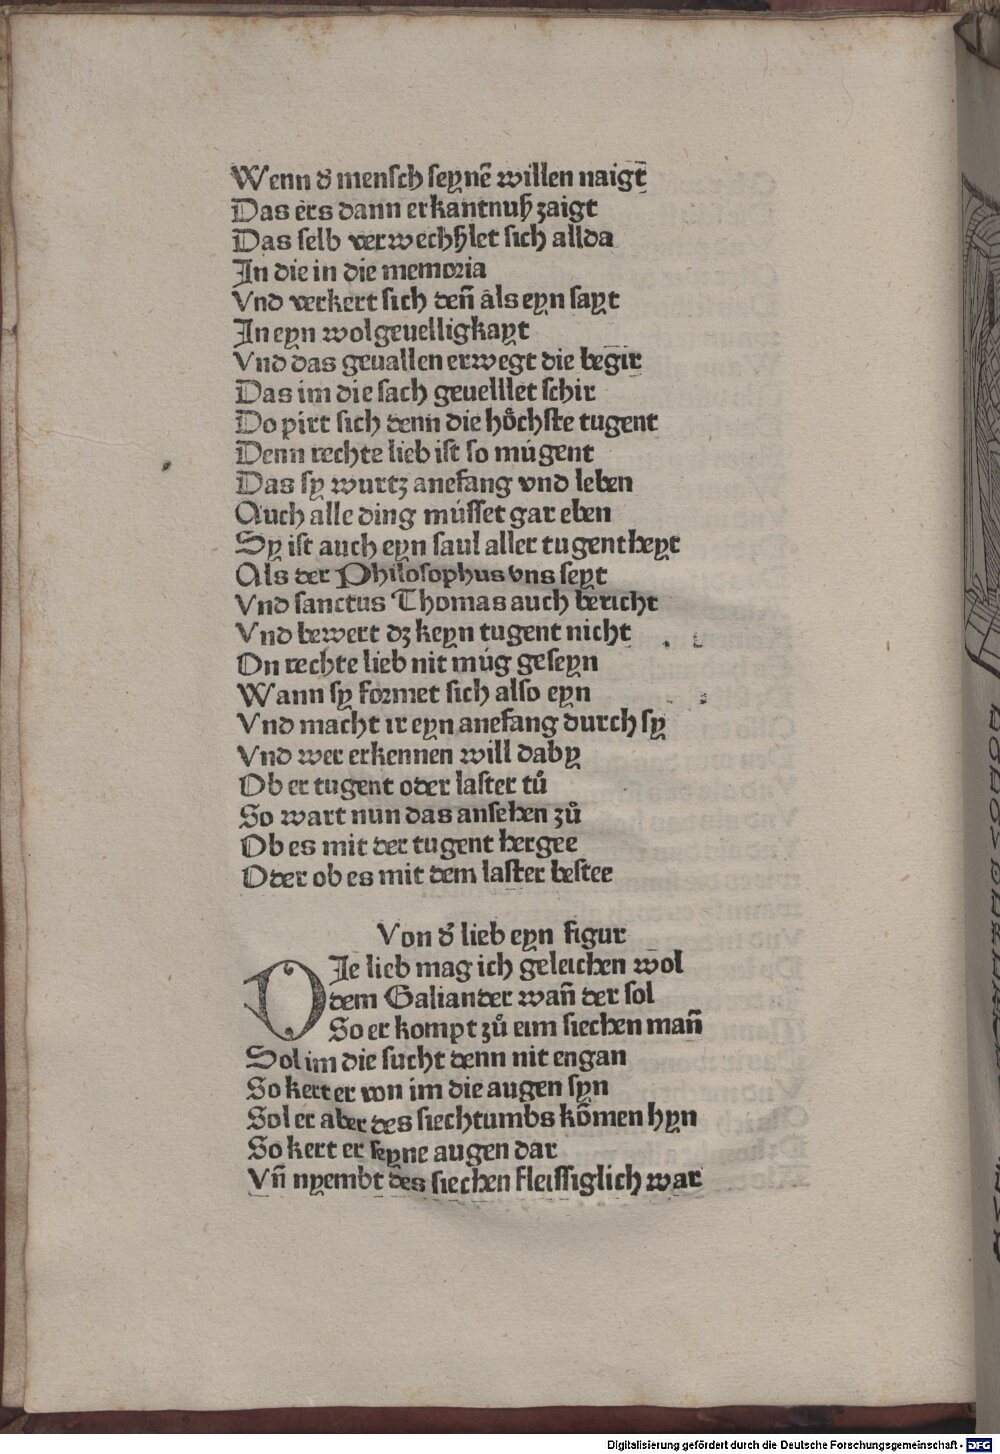 Wenn d᷎ mensch seynē willen naigt
Das ers dann erkantnuß zaigt
Das selb verwechßlet sich allda
In die in die memoria
Vnd verkert sich deñ als eyn sayt
In eyn wolgeuelligkayt
Vnd das geuallen erwegt die begir
Das im die sach geuelllet schir
Do pirt sich denn die hoͤchste tugent
Denn rechte lieb ist so múgent
Das sy wurtz anefang vnd leben
Auch alle ding músset gar eben
Sy ist auch eyn saul aller tugentheyt
Als der Philosophus vns seyt
Vnd sanctus Thomas auch bericht
Vnd bewert dz keyn tugent nicht
On rechte lieb nit múg geseyn
Wann sy formet sich also eyn
Vnd macht ir eyn anefang durch sy
Vnd wer erkennen will daby
Ob er tugent oder laster tuͦ
So wart nun das ansehen zuͦ
Ob es mit der tugent hergee
Oder ob es mit dem laster bestee
Von d᷎ lieb eyn figur
DIe lieb mag ich geleichen wol
dem Galiander wañ der sol
So er kompt zuͦ eim siechen mañ
Sol im die sucht denn nit engan
So kert er von im die augen syn
Sol er aber des siechtumbs kōmen hyn
So kert er seyne augen dar
Vñ nyembt des siechen fleissiglich war
Digitalisierung gefördert durch die Deutsche Forschungsgemeinschaft - DFG